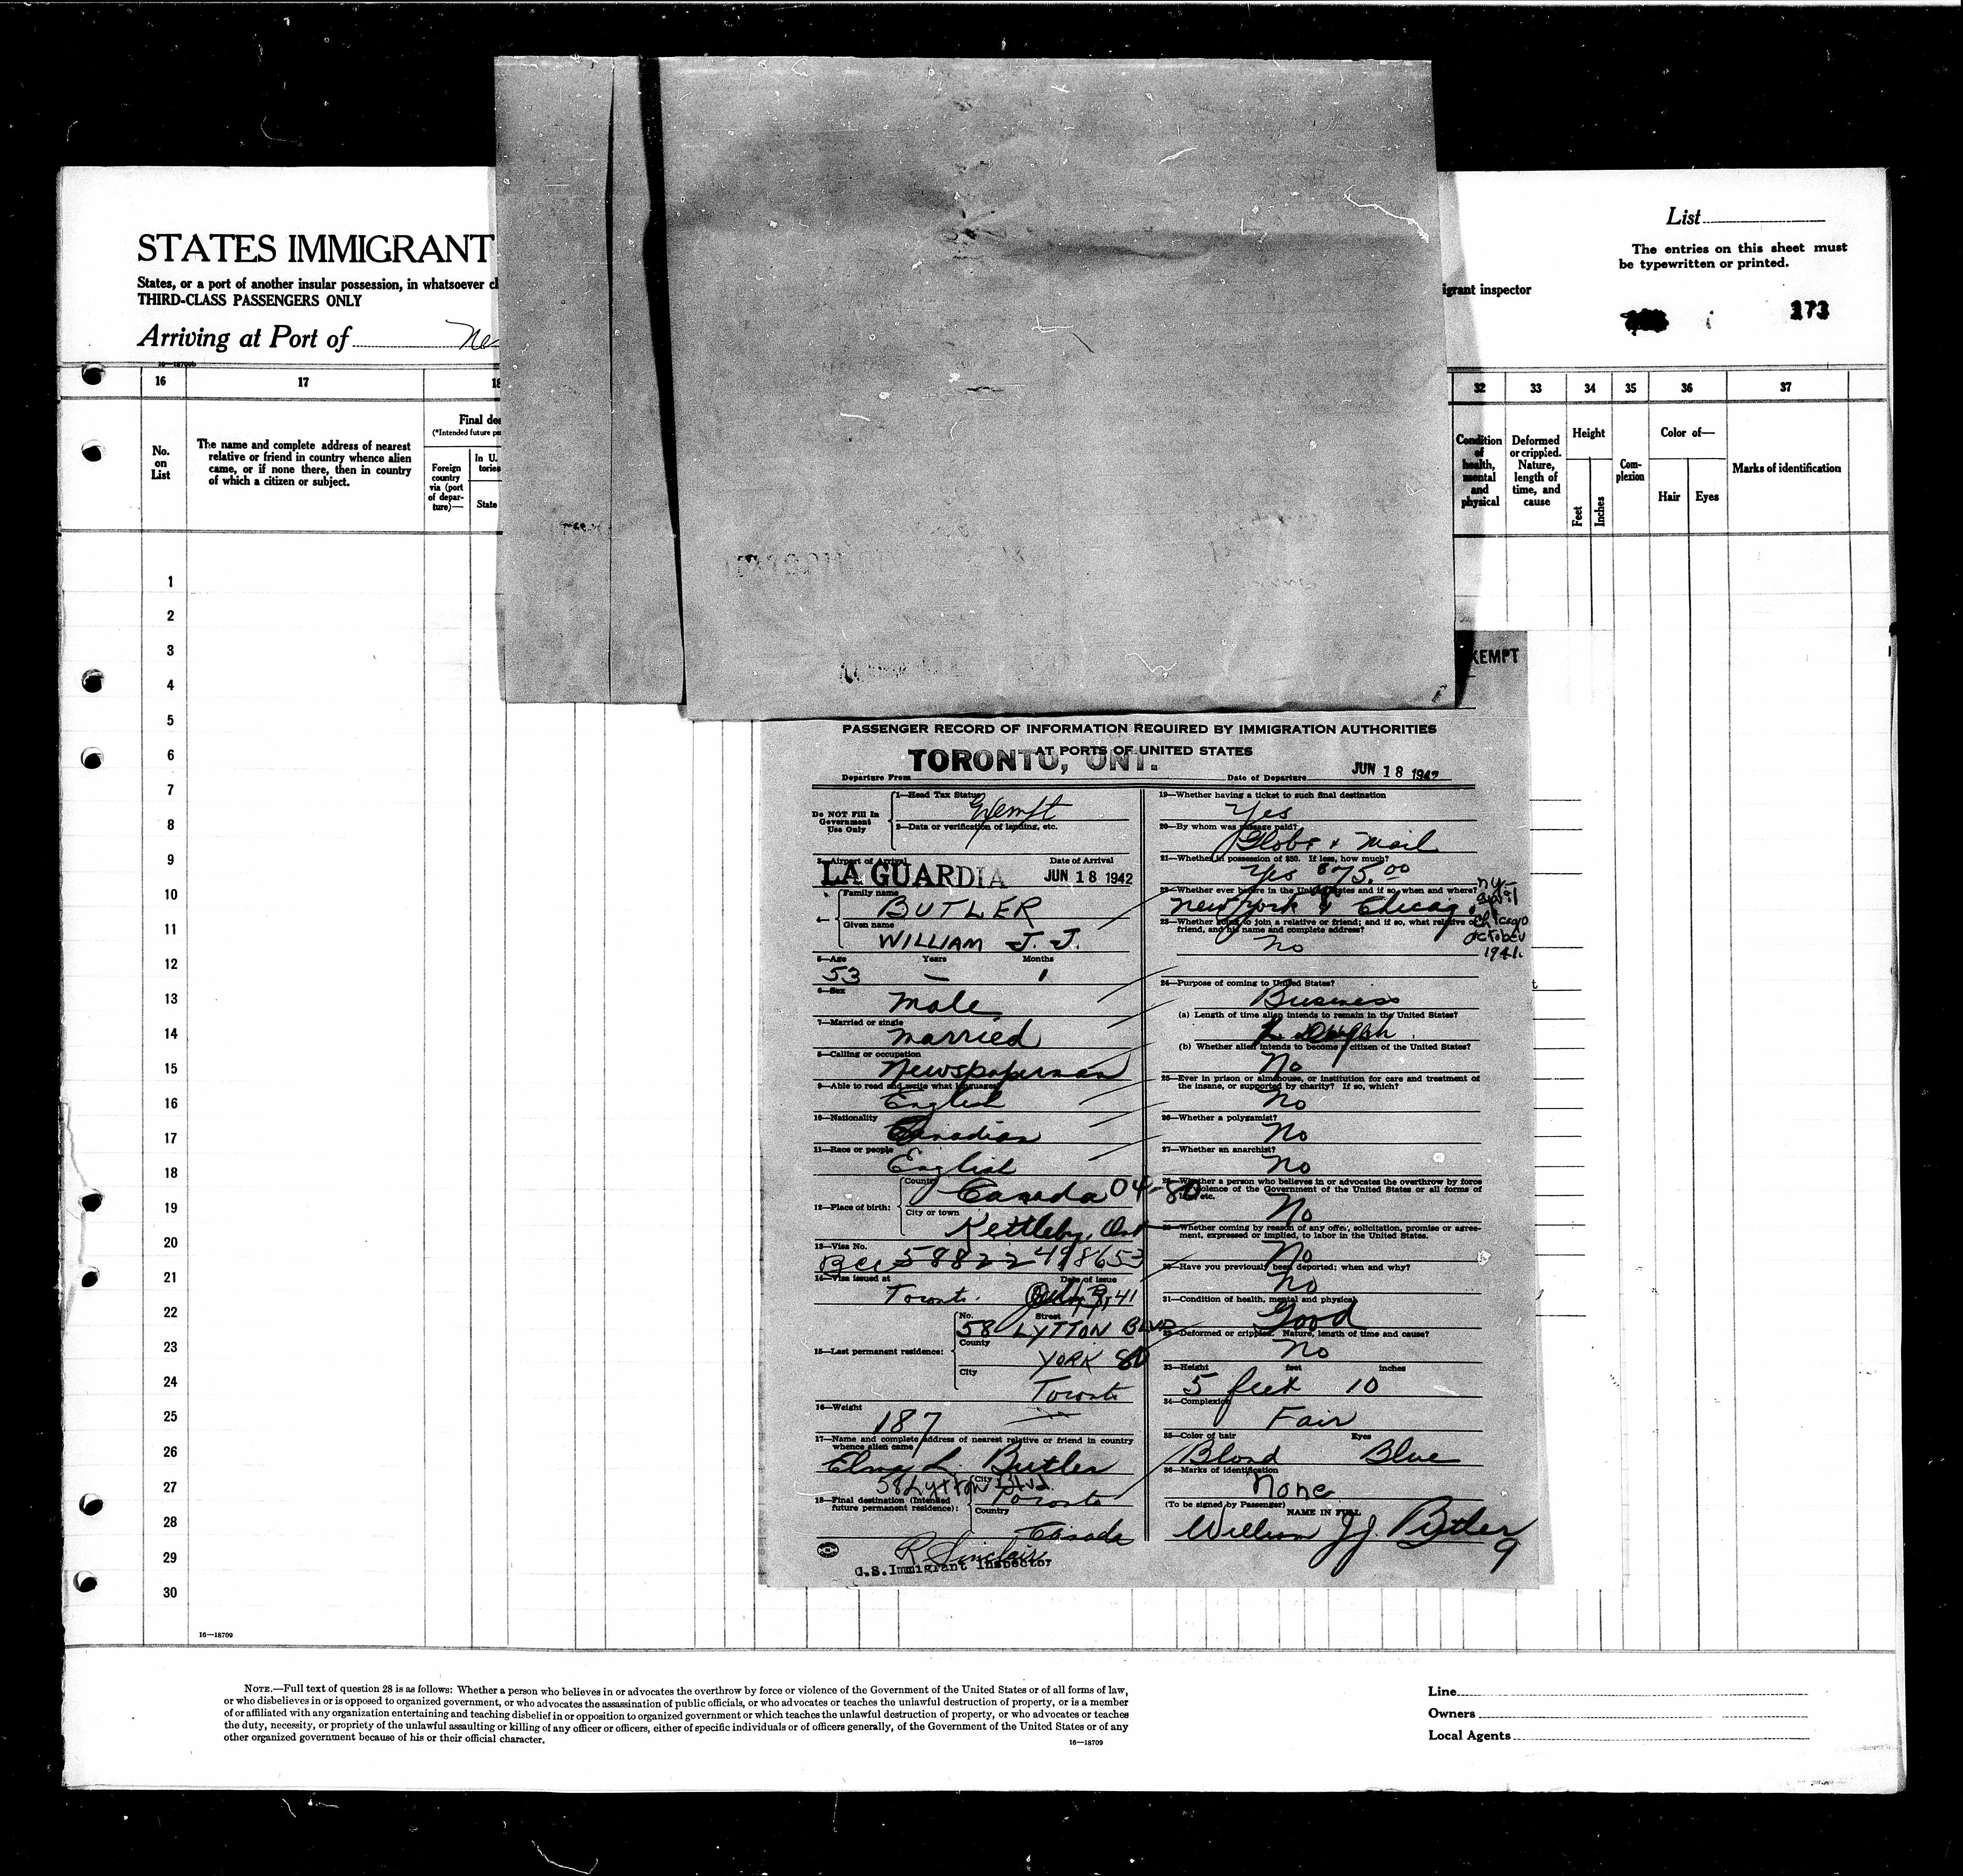 List
The entries on this sheet must
be typewritten or printed.
STATES IMMIGRANT
States, or a port of another insular possession, in whatsoever cl
THIRD-CLASS PASSENGERS ONLY
igrant inspector
273
Arriving at Port of
16—18709b
16 17 18
32 33 34 35 36 37
No.
on
List
The name and complete address of nearest
relative or friend in country whence alien
came, or if none there, then in country
of which a citizen or subject.
Final des
(*Intended future pe
Foreign
country
via (port
of depar-
ture)—
In U.
tories
State
Condition
of
health,
mental
and
physical
Deformed
or crippled.
Nature,
length of
time, and
cause
Height
Feet
Inches
Com-
plexion
Color of—
Hair Eyes
Marks of identification
1
2
3
4
5
6
7
8
9
10
11
12
13
14
15
16
17
18
19
20
21
22
23
24
25
26
27
28
29
30
16—18709
XEMPT
PASSENGER RECORD OF INFORMATION REQUIRED BY IMMIGRATION AUTHORITIES
AT PORTS OF UNITED STATES
TORONTO, ONT.
JUN 18 1942
Departure From
Date of Departure
Do NOT Fill In
Government
Use Only
1—Head Tax Status
Exempt
2—Data or verification of landing, etc.
3—Airport of Arrival Date of Arrival
LA GUARDIA JUN 18 1942
4—
Family name
BUTLER
Given name
WILLIAM J. J.
5—Age Years Months
53 — 1
6—Sex
Male
7—Married or single
Married
8—Calling or occupation
Newspaperman
9—Able to read and write what languages
English
10—Nationality
Canadian
11—Race or people
English
12—Place of birth:
Country
Canada 04-80
City or town
Kettleby, Ont
13—Visa No.
498653
14—Visa issued at Date of Issue
Toronto. 41
15—Last permanent residence:
No. Street
58 LYTTON BLVD
County
YORK
City
Toronto
16—Weight
187
17—Name and complete address of nearest relative or friend in country
whence alien came
L. Butler
58 Lytton Blvd.
18—Final destination (Intended
future permanent residence):
City
Toronto
Country
Canada
R. Sinclair
U.S. Immigrant Inspector
19—Whether having a ticket to such final destination
Yes
20—By whom was passage paid?
Globe & Mail
21—Whether in possession of $50. If less, how much?
Yes $75.00
22—Whether ever before in the United States and if so, when and where?
New York & Chicago
N.Y.—
April
Chicago
October
1941.
23—Whether going to join a relative or friend; and if so, what relative or
friend, and his name and complete address?
No
24—Purpose of coming to United States?
Business
(a) Length of time alien intends to remain in the United States?
(b) Whether alien intends to become a citizen of the United States?
No
25—Ever in prison or almshouse, or institution for care and treatment of
the insane, or supported by charity? If so, which?
No
26—Whether a polygamist?
No
27—Whether an anarchist?
No
28—Whether a person who believes in or advocates the overthrow by force
or violence of the Government of the United States or all forms of
law, etc.
No
29—Whether coming by reason of any offer, solicitation, promise or agree-
ment, expressed or implied, to labor in the United States.
No
30—Have you previously been deported; when and why?
No
31—Condition of health, mental and physical
Good
32—Deformed or crippled. Nature, length of time and cause?
No
33—Height feet inches
5 feet 10
34—Complexion
Fair
35—Color of hair Eyes
Blond Blue
36—Marks of identification
None
(To be signed by Passenger)
NAME IN FULL
William J.J. Butler
9
NOTE.—Full text of question 28 is as follows: Whether a person who believes in or advocates the overthrow by force or violence of the Government of the United States or of all forms of law,
or who disbelieves in or is opposed to organized government, or who advocates the assassination of public officials, or who advocates or teaches the unlawful destruction of property, or is a member
of or affiliated with any organization entertaining and teaching disbelief in or opposition to organized government or which teaches the unlawful destruction of property, or who advocates or teaches
the duty, necessity, or propriety of the unlawful assaulting or killing of any officer or officers, either of specific individuals or of officers generally, of the Government of the United States or of any
other organized government because of his or their official character.
16—18709
Line
Owners
Local Agents